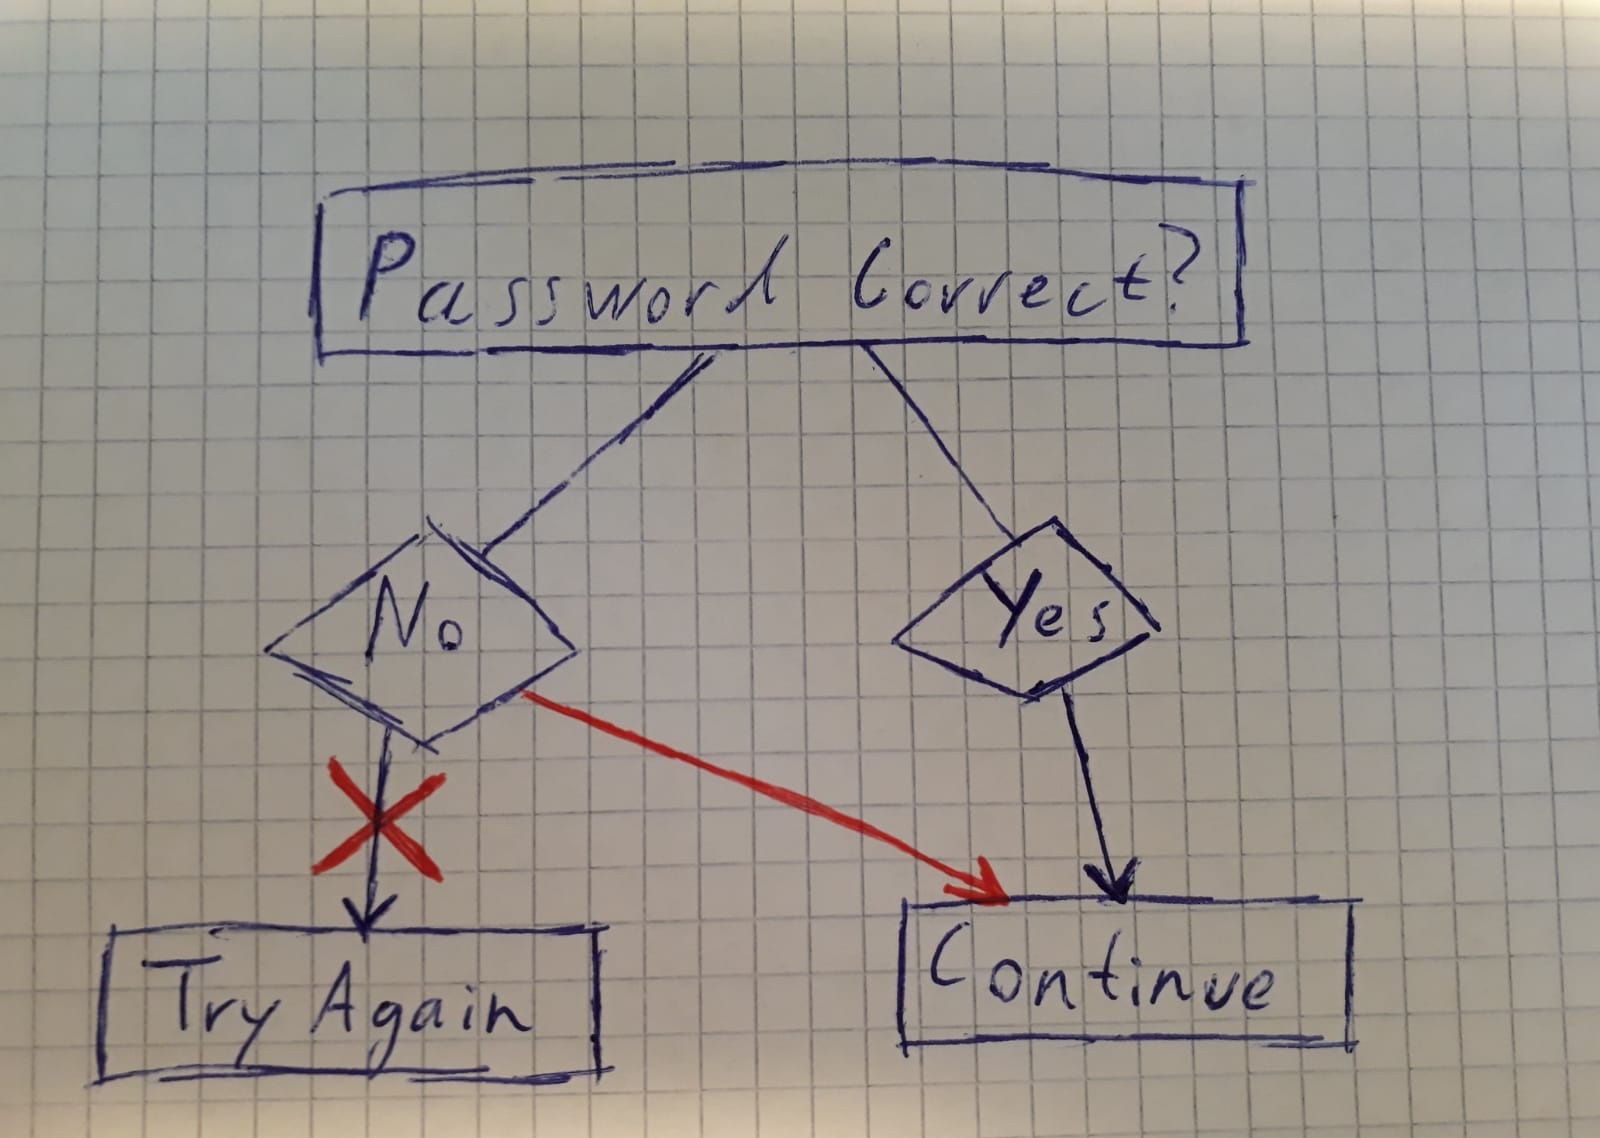 Password Correct?
No
Yes
Try Again
Continue